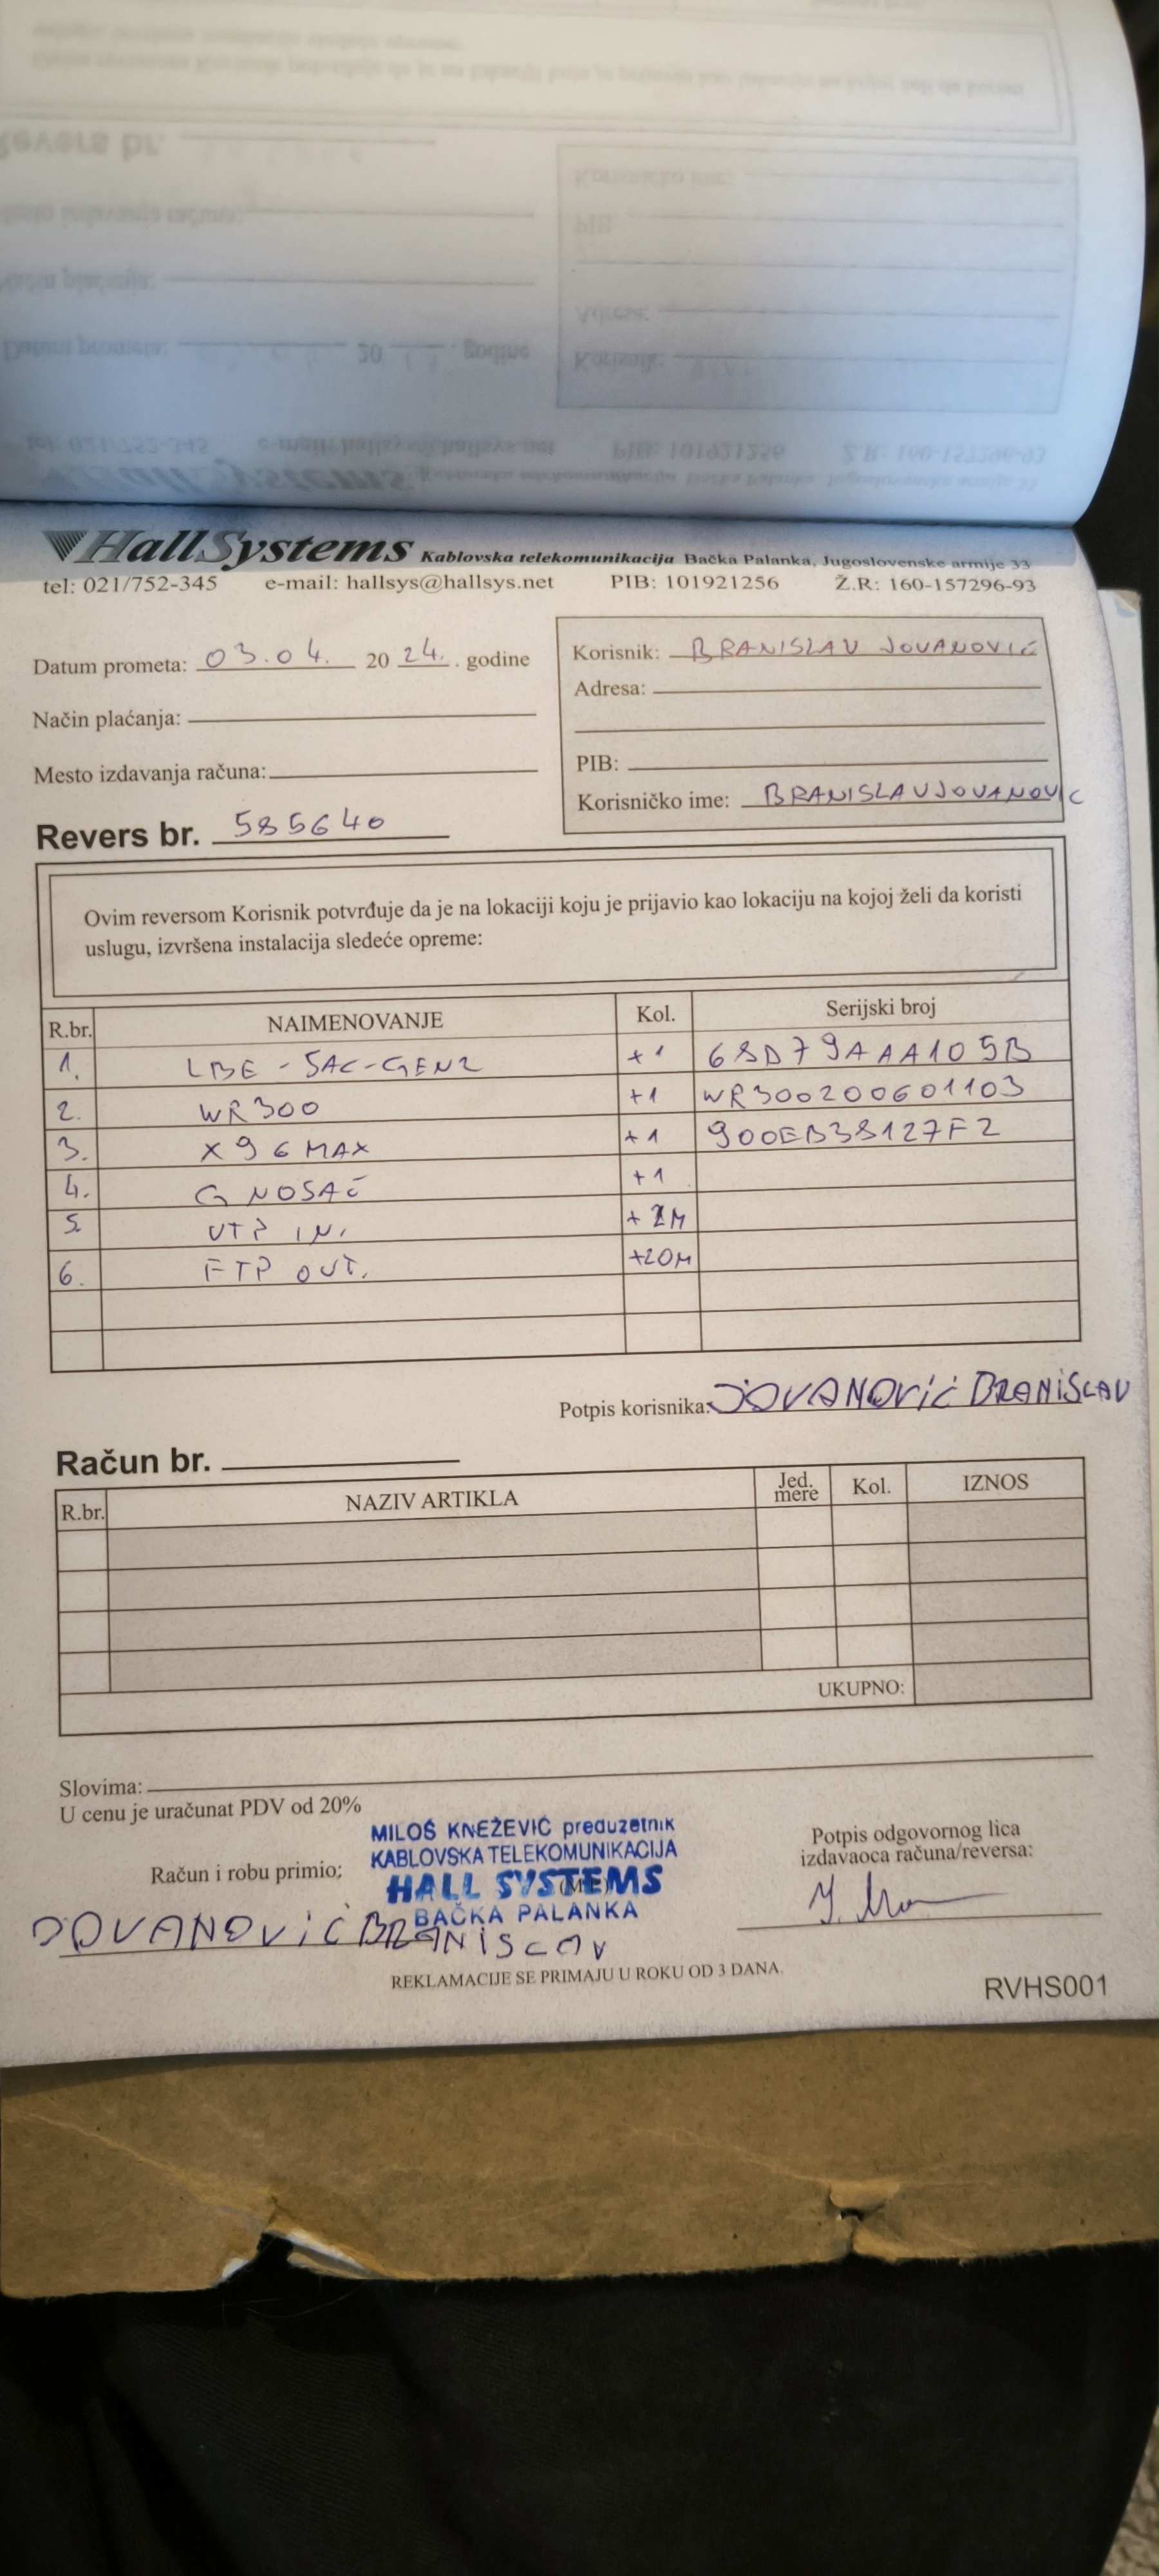 HallSystems Kablovska telekomunikacija Bačka Palanka, Jugoslovenske armije 33
tel: 021/752-345 e-mail: hallsys@hallsys.net PIB: 101921256 Ž.R: 160-157296-93
Datum prometa: 03.04. 20 24. . godine
Način plaćanja:
Mesto izdavanja računa:
Revers br. 585640
Korisnik: BRANISLAV JOVANOVIĆ
Adresa:
PIB:
Korisničko ime: BRANISLAVJOVANOVIC
Ovim reversom Korisnik potvrđuje da je na lokaciji koju je prijavio kao lokaciju na kojoj želi da koristi
uslugu, izvršena instalacija sledeće opreme:
R.br. NAIMENOVANJE Kol. Serijski broj
1. LBE-5AC-GEN2 +1 68D79AAA105B
2. WR300 +1 WR300200601103
3. X96MAX +1 900EB38127F2
4. G NOSAČ +1
5. UTP IN. + 2M
6. FTP OUT. +20M
Potpis korisnika: JOVANOVIĆ BRANISLAV
Račun br.
R.br. NAZIV ARTIKLA Jed. mere Kol. IZNOS
UKUPNO:
Slovima:
U cenu je uračunat PDV od 20%
Račun i robu primio:
JOVANOVIĆ BRANISLAV
MILOŠ KNEŽEVIĆ preduzetnik
KABLOVSKA TELEKOMUNIKACIJA
HALL SYSTEMS
BAČKA PALANKA
Potpis odgovornog lica
izdavaoca računa/reversa:
REKLAMACIJE SE PRIMAJU U ROKU OD 3 DANA.
RVHS001